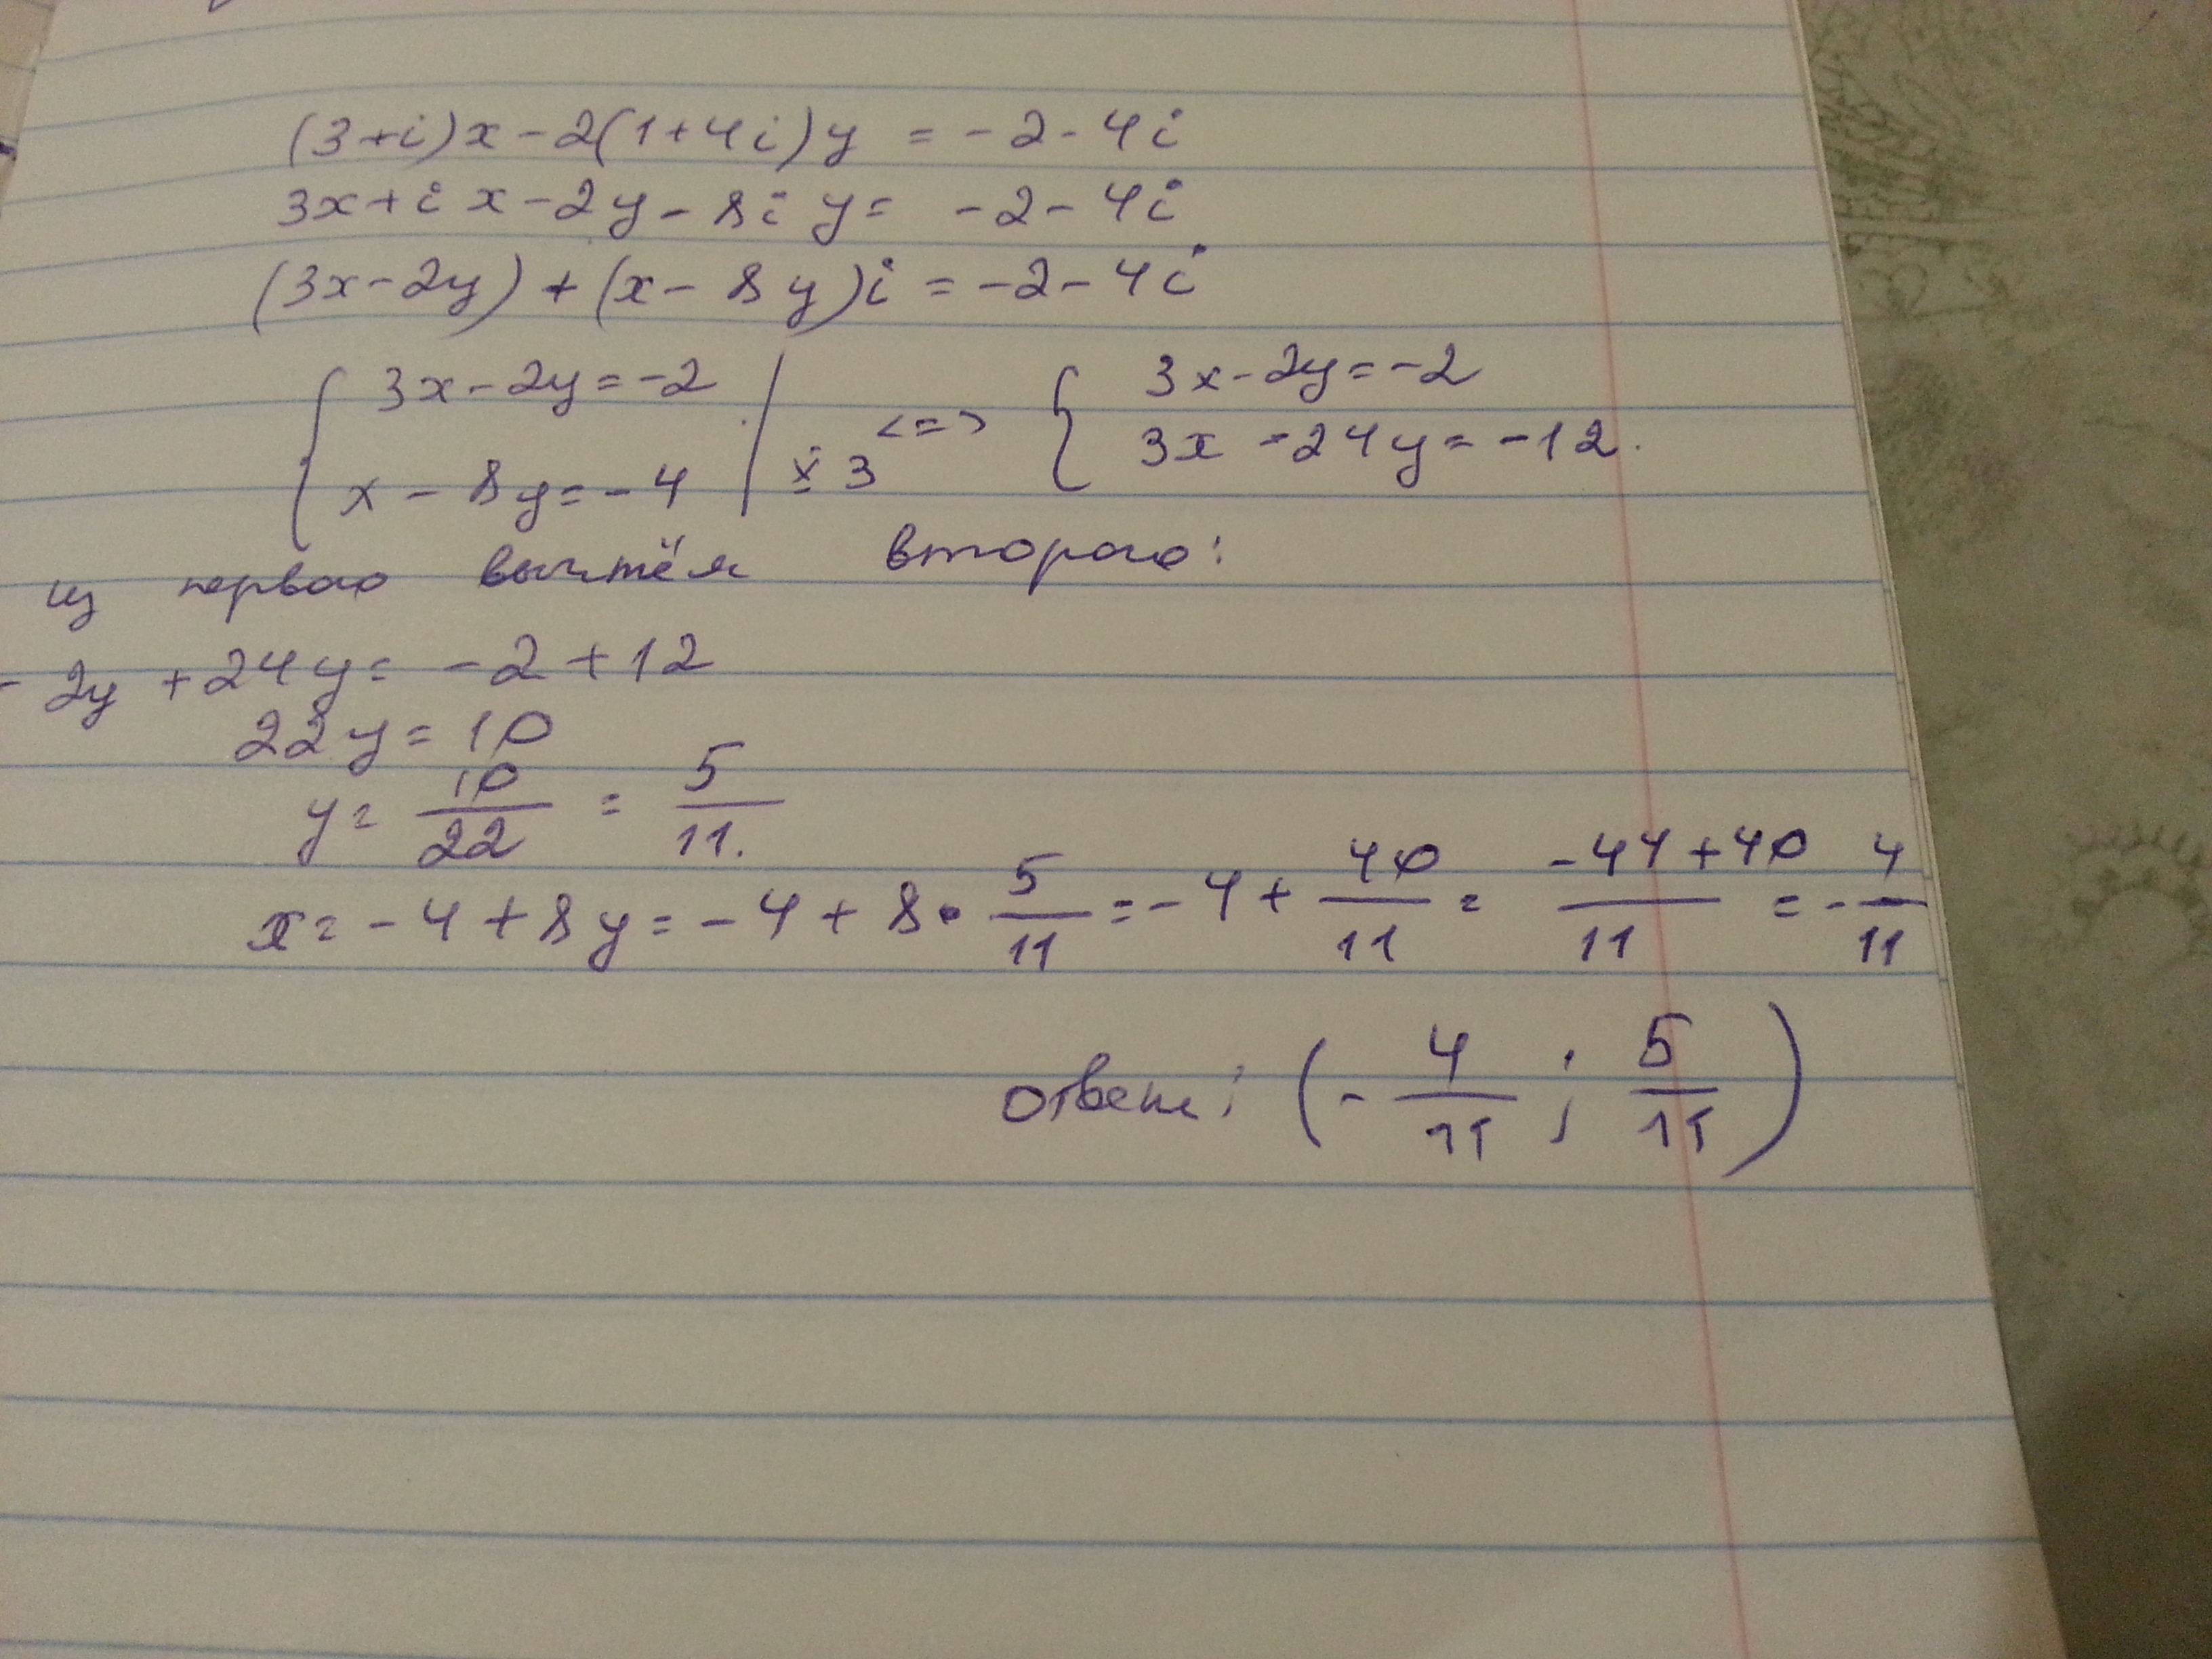 (3+i)x-2(1+4i)y = -2-4i
3x+ix-2y-8iy = -2-4i
(3x-2y)+(x-8y)i = -2-4i
{ 3x-2y=-2 | <=> { 3x-2y=-2
x-8y=-4 | x 3 3x-24y=-12.
из первого вычтём второго:
-2y+24y=-2+12
22y=10
y= 10/22 = 5/11.
x=-4+8y=-4+8·5/11=-4+40/11= (-44+40)/11 =-4/11
ответ: (-4/11; 5/11)